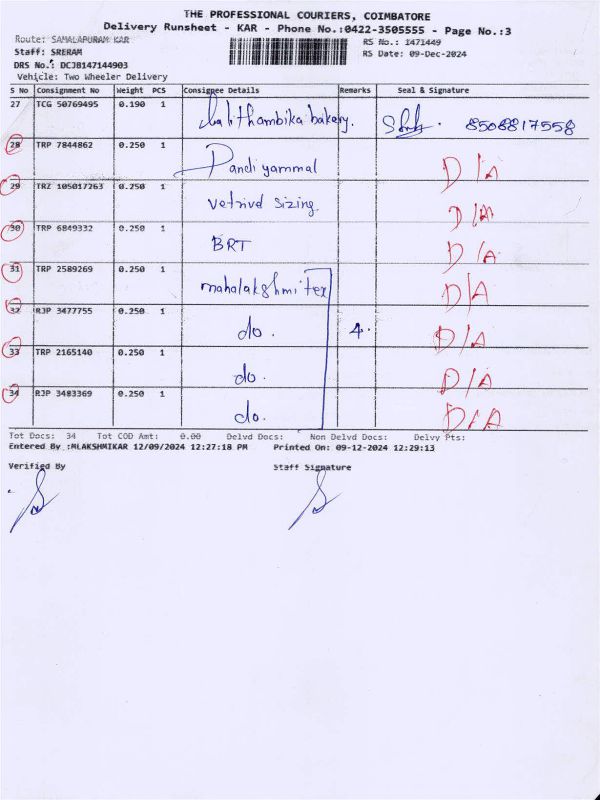 THE PROFESSIONAL COURIERS, COIMBATORE
Delivery Runsheet - KAR - Phone No.:0422-3505555 - Page No.:3
Route: SAMALAPURAM KAR RS No.: 1471449
Staff: SRERAM RS Date: 09-Dec-2024
DRS No.: DCJB147144903
Vehicle: Two Wheeler Delivery
S No Consignment No Weight PCS Consignee Details Remarks Seal & Signature
27 TCG 50769495 0.190 1 Lalithambika bakery. 8508817558
28 TRP 7844862 0.250 1 Pandiyammal D/A
29 TRZ 105017263 0.250 1 Vetrivel Sizing. D/A
30 TRP 6849332 0.250 1 BRT D/A
31 TRP 2589269 0.250 1 mahalakshmi Tex D/A
32 RJP 3477755 0.250 1 do. 4. D/A
33 TRP 2165140 0.250 1 do. D/A
34 RJP 3483369 0.250 1 do. D/A
Tot Docs: 34 Tot COD Amt: 0.00 Delvd Docs: Non Delvd Docs: Delvy Pts:
Entered By :MLAKSHMIKAR 12/09/2024 12:27:18 PM Printed On: 09-12-2024 12:29:13
Verified By Staff Signature